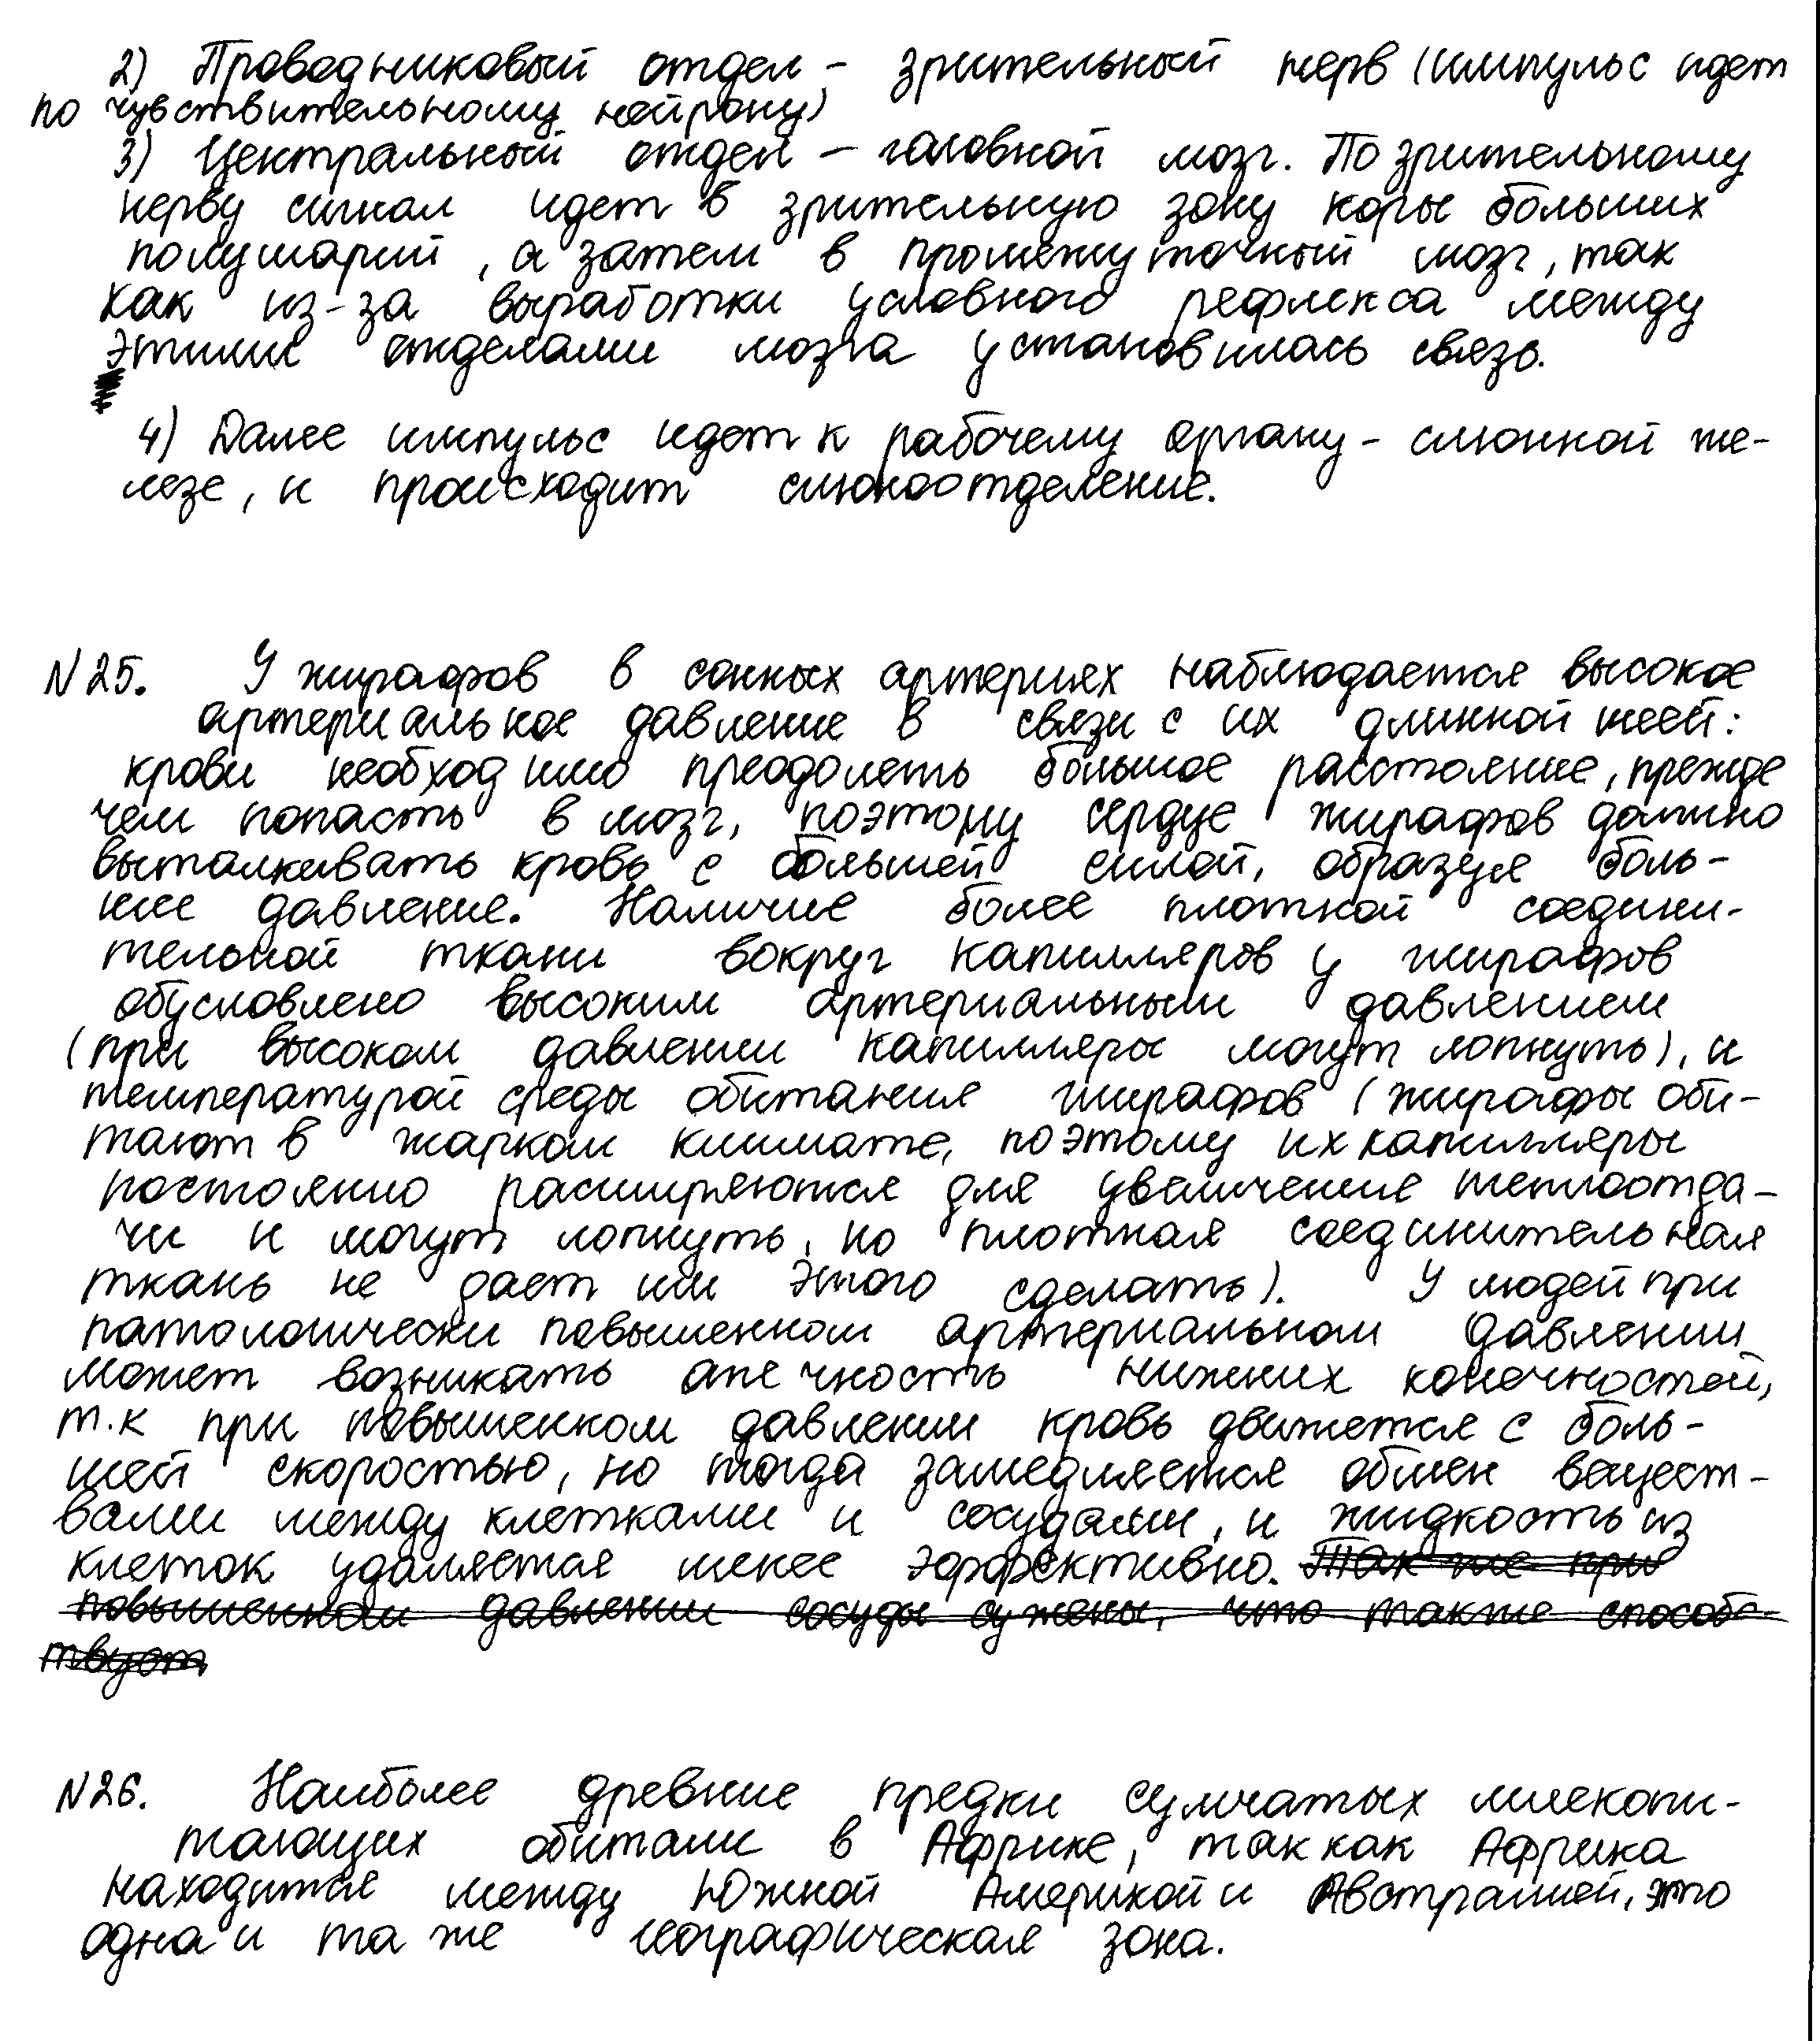 2) Проводниковый отдел - зрительный нерв (импульс идет
по чувствительному нейрону)
3) Центральный отдел - головной мозг. По зрительному
нерву сигнал идет в зрительную зону коры больших
полушарий, а затем в промежуточный мозг, так
как из-за выработки условного рефлекса между
этими отделами мозга установилась связь.
4) Далее импульс идет к рабочему органу - слюнной же-
лезе, и происходит слюноотделение.
N25. У жирафов в сонных артериях наблюдается высокое
артериальное давление в связи с их длинной шеей:
крови необходимо преодолеть большое расстояние, прежде
чем попасть в мозг, поэтому сердце жирафов должно
выталкивать кровь с большей силой, образуя боль-
шее давление. Наличие более плотной соедини-
тельной ткани вокруг капилляров у жирафов
обусловлено высоким артериальным давлением
(при высоком давлении капилляры могут лопнуть), и
температурой среды обитания жирафов (жирафы оби-
тают в жарком климате, поэтому их капилляры
постоянно расширяются для увеличения теплоотда-
чи и могут лопнуть, но плотная соединительная
ткань не дает им этого сделать). У людей при
патологически повышенном артериальном давлении
может возникать отечность нижних конечностей,
т.к при повышенном давлении кровь движется с боль-
шей скоростью, но тогда замедляется обмен вещест-
вами между клетками и сосудами, и жидкость из
клеток удаляется менее эффективно. Так же при
повышенном давлении сосуды сужены, что также способс-
твует
N26. Наиболее древние предки сумчатых млекопи-
тающих обитали в Африке, так как Африка
находится между Южной Америкой и Австралией, это
одна и та же географическая зона.